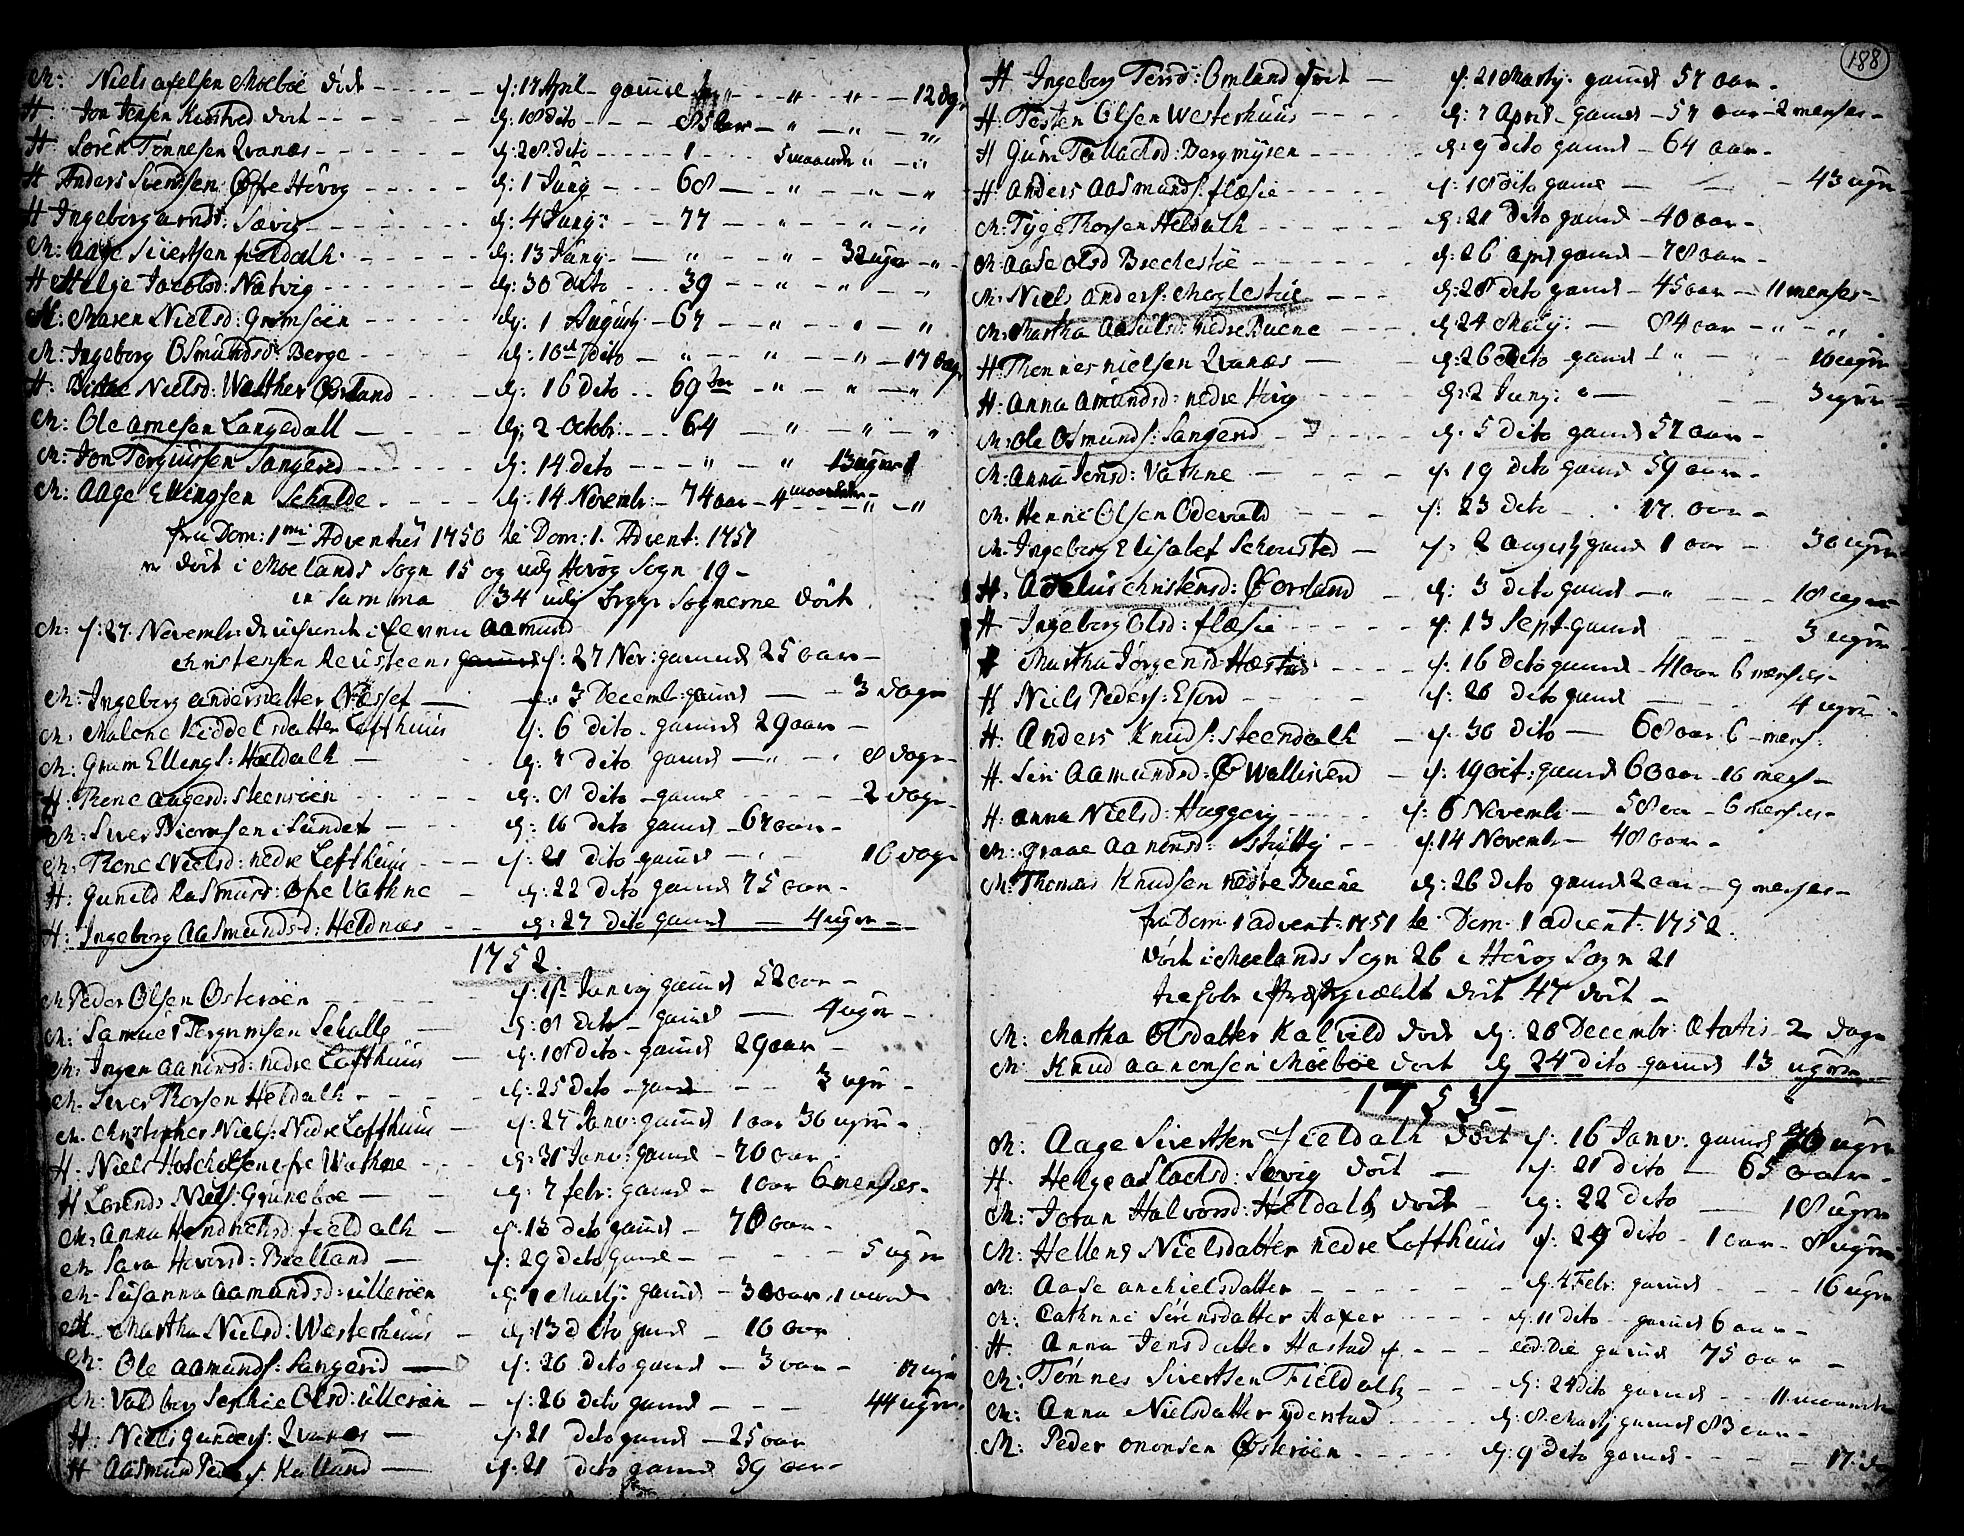 M: Niels Axelsen Moeboe dödt - - - d: 17 April - gammel - " - " - 12 dage
H: Jon Jensen dödt - - - d: 18 dito - - - 85 aar - " - " - "
H Sören Tönnesen Qvanæs - - - d: 28 dito - - - 1 - 5 maaneder " - "
H Anders Svendsen Öfre Hövog - - - d: 1 Juny - - - 68 - " - " - "
H Ingeborg Arnds: Sævig - - - d: 4 Juny: - - - 77 - " - " - "
M: Aage Sivertsen Fieldalh - - - d: 13 Juny - " - " - 32 uger - "
H Helje Jacobsd: Natvig - - - d: 30 dito - - - 39 - " - " - "
M: Maren Nielsd: Gromsöen - - - d: 1 Augusty - 67 - " - " - "
M: Ingeborg Osmundsd: Berge - - - d: 10 dito - " - " - " - 17 dage
H: Nielsd: Walther Örsland - - - d: 16 dito - - 69 aar - " - " - "
M: Ole Arnesen Langedall - - - d: 2 Octobr: - - - 64 - " - " - "
M: Jon Torgiussen Sangerd - - - d: 14 dito - - - " - " 13 uger
M: Aage Ellingsen Schalde - - - d: 14 Novembr: - 74 aar - 4 maaneder - " - "
fra Dom: 1mi Adventus 1750 te Dom: 1. Advent: 1751
er dödt i Moelands Sogn 15 og udj Hövog Sogn 19 -
in Summa 34 udj begge Sognerne dödt
M: d: 27. Novembr: Aamund
Christensen gamel d: 27 Nov: gamel 25 aar -
M: Ingeborg Andersdatter Næsset - d: 3 Decemb: gamel - - 3 dage
M: Malene Kiddelsdatter Lofthuus d: 6 dito - gamel 29 aar -
M: Gram Ellings: Hældalh - d: 7 dito gamel - " - 8 dage
H: Rene Aagesd: Steensöen - - - d: 8 dito - gamel - - - 2 dage
M: Siver Biörnsen i Sundet - - - d: 16 dito gamel - 67 aar -
M: Trene Nielsd: nedre Lofthuus - - - d: 21 dito gamel - - - 10 dage
H: Gunild Rasmusd: Öfre Vathne - d: 22 dito gamel 75 aar -
H: Ingeborg Aasmundsd: Heldnæs - - d: 27 dito gamel - 4 uger -
1752.
M Peder Olsen Osteröen - - - d: Janvarj gamel 52 aar -
M: Samuel Schalle - d: 8 dito - gamel - 4 uger -
M: Inger Aanensd: nedre Lofthuus - d: 18 dito - gamel 29 aar -
M. Siver Thorsen Heldalh - - - d: 25 dito - gamel - - 3 uger -
M. Christopher Niels: Nedre Lofthuus - d: 27 Janv: gamel 1 aar 36 uger -
H: Niels öfre Wathne - - d: 31 Janv: gamel - 70 aar -
H Lorends Niels: Gruneboe - - d: 7 febr: gamel - 1 aar 6 menses -
M: Anna Hendrichsd: Fieldalh - d: 13 dito gamel - 70 aar -
M Sara Hovorsd: Bielland - d: 29 dito gamel - - - - 5 uger
M. Susanna Aamundsd: Ulleröen d: 1 Martj: gamel - 30 aar. 1 maaned
H Martha Nielsd: Westerhuus - d: 13 dito gamel - 16 aar
M: Ole Aamunds: Sangerd - d: 26 dito gamel - 3 aar - 17 uger
M: Valdborg Sophie Olsd: Ulleröen - d: 26 dito gamel - - - 44 uger.
H: Niels Gunders: Qvanæs - d: 21 dito gamel - 25 aar
H Aasmund Peders: Kalland - d: 21 dito gamel 39 aar -
188
H Ingeborg Tersd: Omland dödt - d: 21 Martj: gamel 57 aar -
H: Tosten Olsen Westerhuus - - - d: 7 April - gamel - 57 aar - 2 menses -
H Guro Tallachsd: Bergmyren - - - d: 9 dito gamel - 64 aar -
H: Anders Aasmunds: Flæsie - - - d: 18 dito gamel - - - 43 uger -
M: Tyge Thorsen Heldalh - - - d: 21 dito gamel - 40 aar -
M Aase Olsd Brechestöe - - - d: 26 april gamel - 78 aar -
M: Niels Anders: Moglestue - - - d: 28 dito gamel - 45 aar - 11 menses -
M: Martha Aasulsd: nedre Buene - - - d: 24 Maij: - 84 aar - " - "
H: Thönnes Nielsen Qvanæs - d: 26 dito gamel " - " - 16 uger
H: Anna Amundsd: nedre Hövog d: 2 Junj: " - - - 3 uger -
M: Ole Osmunds: Sangerd - - - d: 5 dito gamel 57 aar -
M: Anna Jensd: Vathne - - - d: 19 dito gamel 59 aar -
M: Henric Olsen Odevald - - - d: 23 dito - 17 aar -
M: Ingeborg Elisabet Schousted - d: 2 Augusty gamel 1 aar - 30 uger
H: Adelus Christensd: Öorsland d: 3 dito gamel - " - - - 18 uger
H Ingeborg Olsd: Flæsie - - - d: 13 Sept gamel - - - 3 uger
Martha Jörgensd Hæstad - - - d: 16 dito gamel - 41 aar 6 menses -
H Niels Peders: Eford - - - d: 26 dito gamel - - - 4 uger -
H: Anders Knuds: Steendalh - d: 30 dito - 68 aar 6 - mens:
H: Siri Aamundsd: Ö Wallisöen - d: 19 oct: gamel 60 aar - 10 menses -
H: Anna Nielsd: Haggerig - - - d: 6 Novembr - 58 aar - 6 menses -
M: Graae Aanonsd: - - d: 14 Novembr - 48 aar -
M: Thomas Knudsen nedre Buene d: 26 dito gamel 2 aar - 9 menses -
fra Dom: 1 advent: 1751 te Dom: 1 advent: 1752.
dödt i Moelands Sogn 26 i Hövog Sogn 21
dödt 47 dödt -
M: Martha Olsdatter Kalvild dödt d: 20 Decembr: Ætatis 2 dage
M: Knud Aanonsen Moeboe dödt d: 24 dito gamel 13 uger -
1753 -
M: Aage Sivertsen Fieldalh dödt d: 16 Janv: gamel uger
H: Helge Aslachsd: Sævig dödt - d: 21 dito - 65 aar -
M: Joran Halvorsd: Heldalh dödt - d: 22 dito - 18 uger
M: Hellene Nielsdatter nedre Lofthuus d: 29 dito - 1 aar - 8 uger
M: Aase Anchielsdatter - - - d: 4 Febr: gamel - - - 16 uger
M: Cathrine Sörensdatter Hæfer - - - d: 11 dito - gamel 6 aar -
H. Anna Jensdatter Hæstad - - - eod: Die gamel 75 aar -
M: Tönnes Sivertsen Fieldalh - - - d: 24 dito gamel - - 11 maaneder
M: Anna Nielsdatter Yderstad - - - d: 8 Martj gamel 83 aar -
M: Peder Ononsen Österöen - - - d: 9 dito gamel - - - 17 da